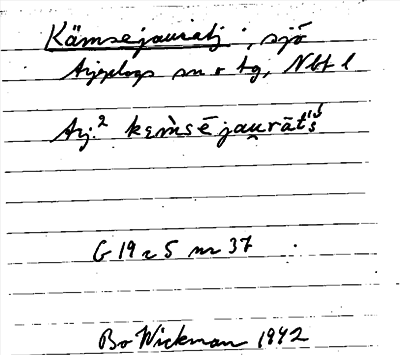 Kämsejauratj, sjö
Arjeplogs sn o tg, Nbt l
Arj.² kem̀sējau̯rāt́ś
G 19 r 5 nr 37
Bo Wickman 1942